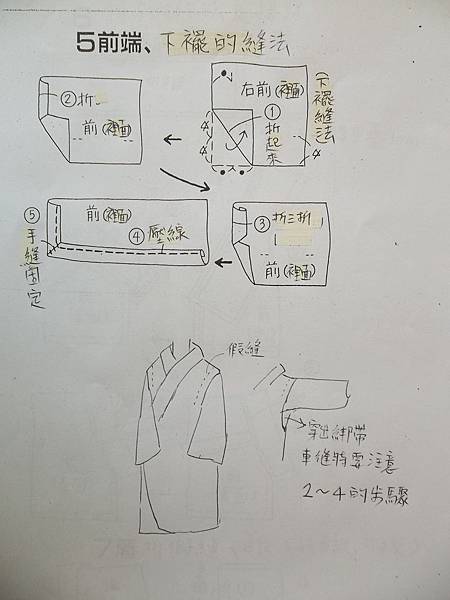 5前端、下襬的縫法
②折
前(裡面)
右前(裡面)
①折起來
4
4
4
(下襬縫法)
⑤手縫固定
前(裡面)
④壓線
③折三折
前(裡面)
假縫
穿出綁帶
車縫時要注意
2~4的步驟